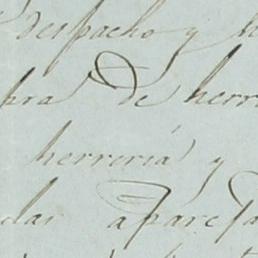 despacho y
bra de herr
herreria y
das apareja